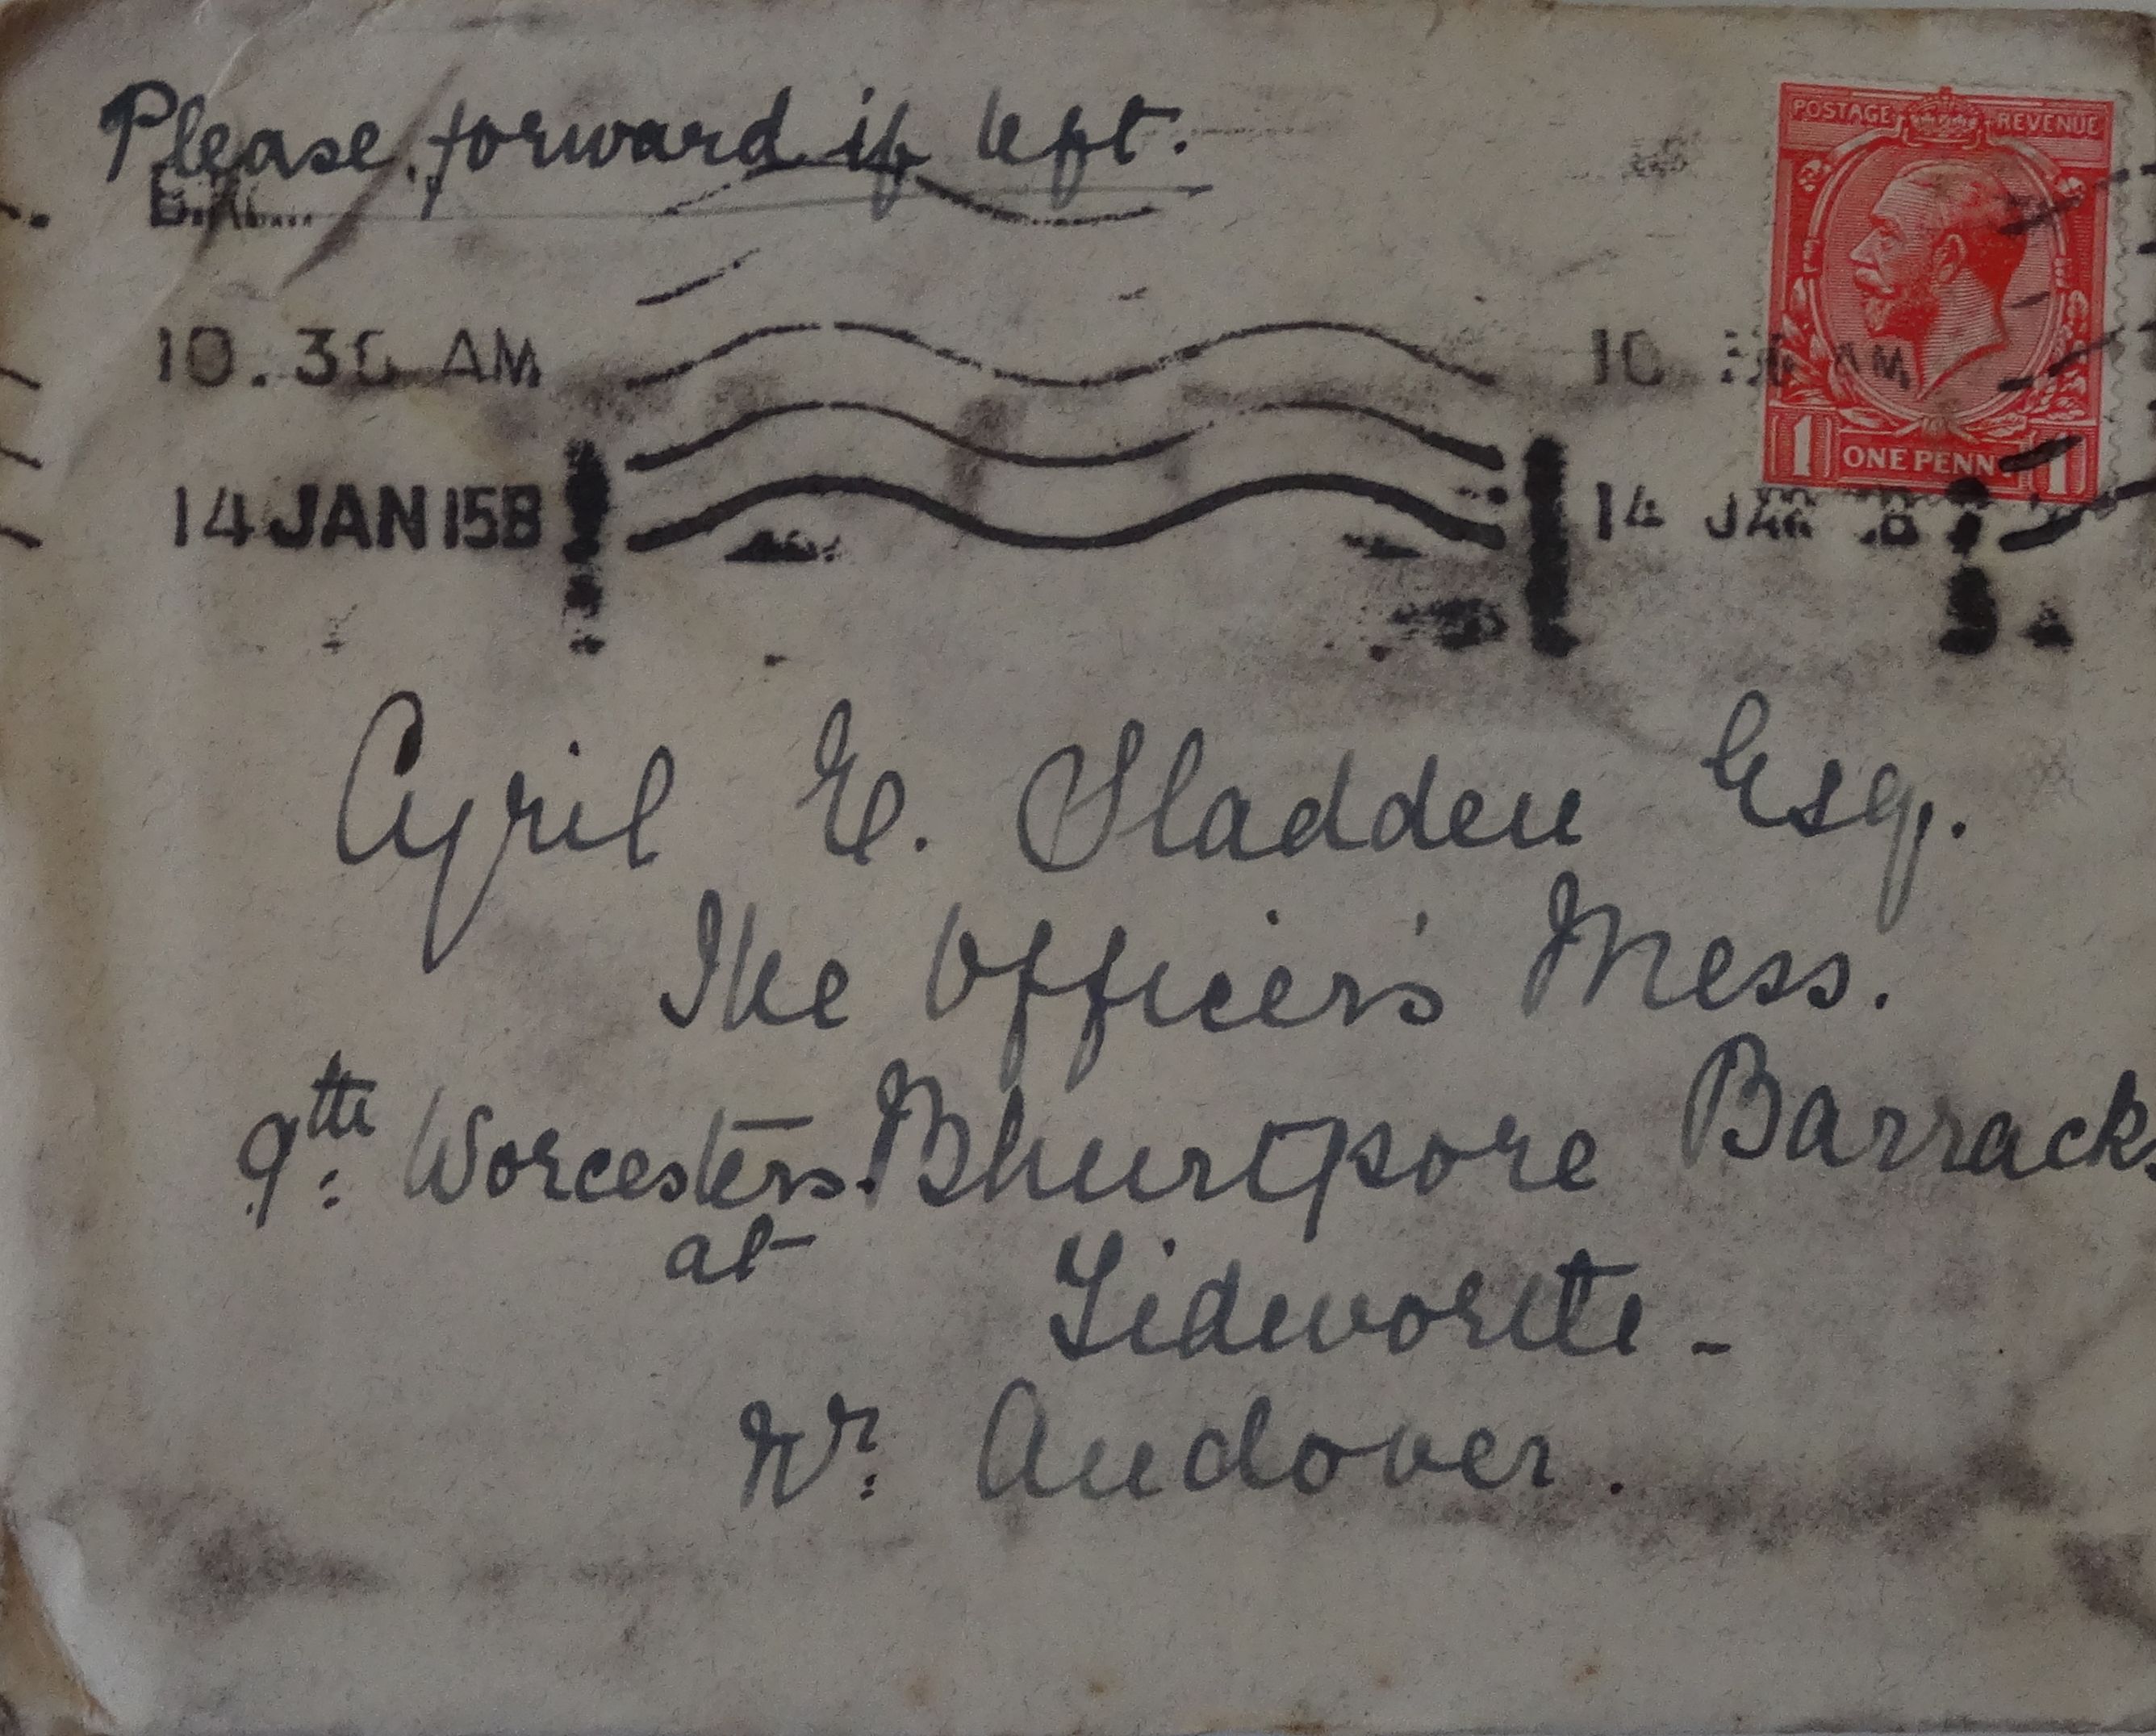 Please forward if left.
POSTAGE REVENUE
10.30 AM
10 30 AM
1 ONE PENNY 1
14 JAN 15B
14 JAN
Cyril E. Sladden Esq.
The Officer's Mess.
9th Worcesters. Bhurtpore Barracks
at Tidworth -
Nr. Andover.